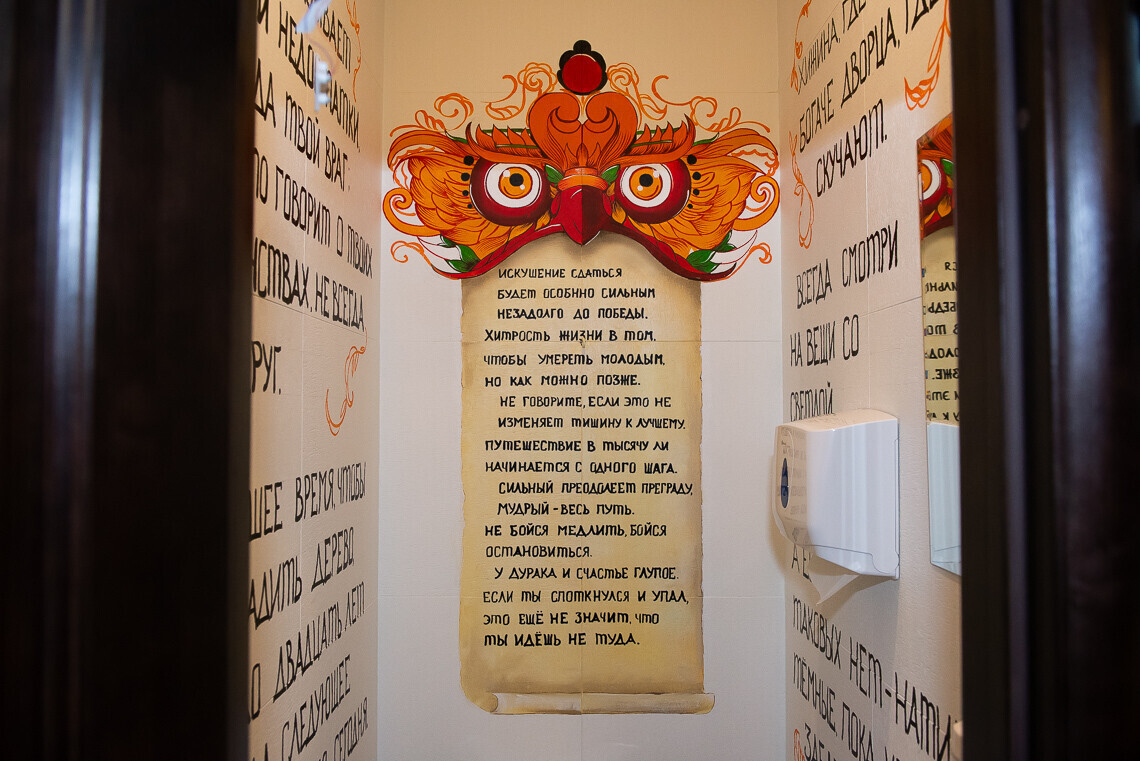 И НЕДО
ДА ТВОЙ ВРАГ.
ГОВОРИТ О ТВОИХ
НЕ ВСЕГДА
ВРЕМЯ, ЧТОБЫ
ДЕРЕВО,
ДВАДЦАТЬ ЛЕТ
СЛЕДУЮЩЕЕ
СЕГОДНЯ
ИСКУШЕНИЕ СДАТЬСЯ
БУДЕТ ОСОБННО СИЛЬНЫМ
НЕЗАДОЛГО ДО ПОБЕДЫ.
ХИТРОСТЬ ЖИЗНИ В ТОМ,
ЧТОБЫ УМЕРЕТЬ МОЛОДЫМ,
НО КАК МОЖНО ПОЗЖЕ.
НЕ ГОВОРИТЕ, ЕСЛИ ЭТО НЕ
ИЗМЕНЯЕТ ТИШИНУ К ЛУЧШЕМУ.
ПУТЕШЕСТВИЕ В ТЫСЯЧУ ЛИ
НАЧИНАЕТСЯ С ОДНОГО ШАГА.
СИЛЬНЫЙ ПРЕОДОЛЕЕТ ПРЕГРАДУ,
МУДРЫЙ - ВЕСЬ ПУТЬ.
НЕ БОЙСЯ МЕДЛИТЬ, БОЙСЯ
ОСТАНОВИТЬСЯ.
У ДУРАКА И СЧАСТЬЕ ГЛУПОЕ.
ЕСЛИ ТЫ СПОТКНУЛСЯ И УПАЛ,
ЭТО ЕЩЁ НЕ ЗНАЧИТ, ЧТО
ТЫ ИДЁШЬ НЕ ТУДА.
ХИЖИНА, ГДЕ
БОГАЧЕ ДВОРЦА, ГДЕ
СКУЧАЮТ.
ВСЕГДА СМОТРИ
НА ВЕЩИ СО
СВЕТЛОЙ
ТАКОВЫХ НЕТ - НАТИ
ТЕМНЫЕ, ПОКА